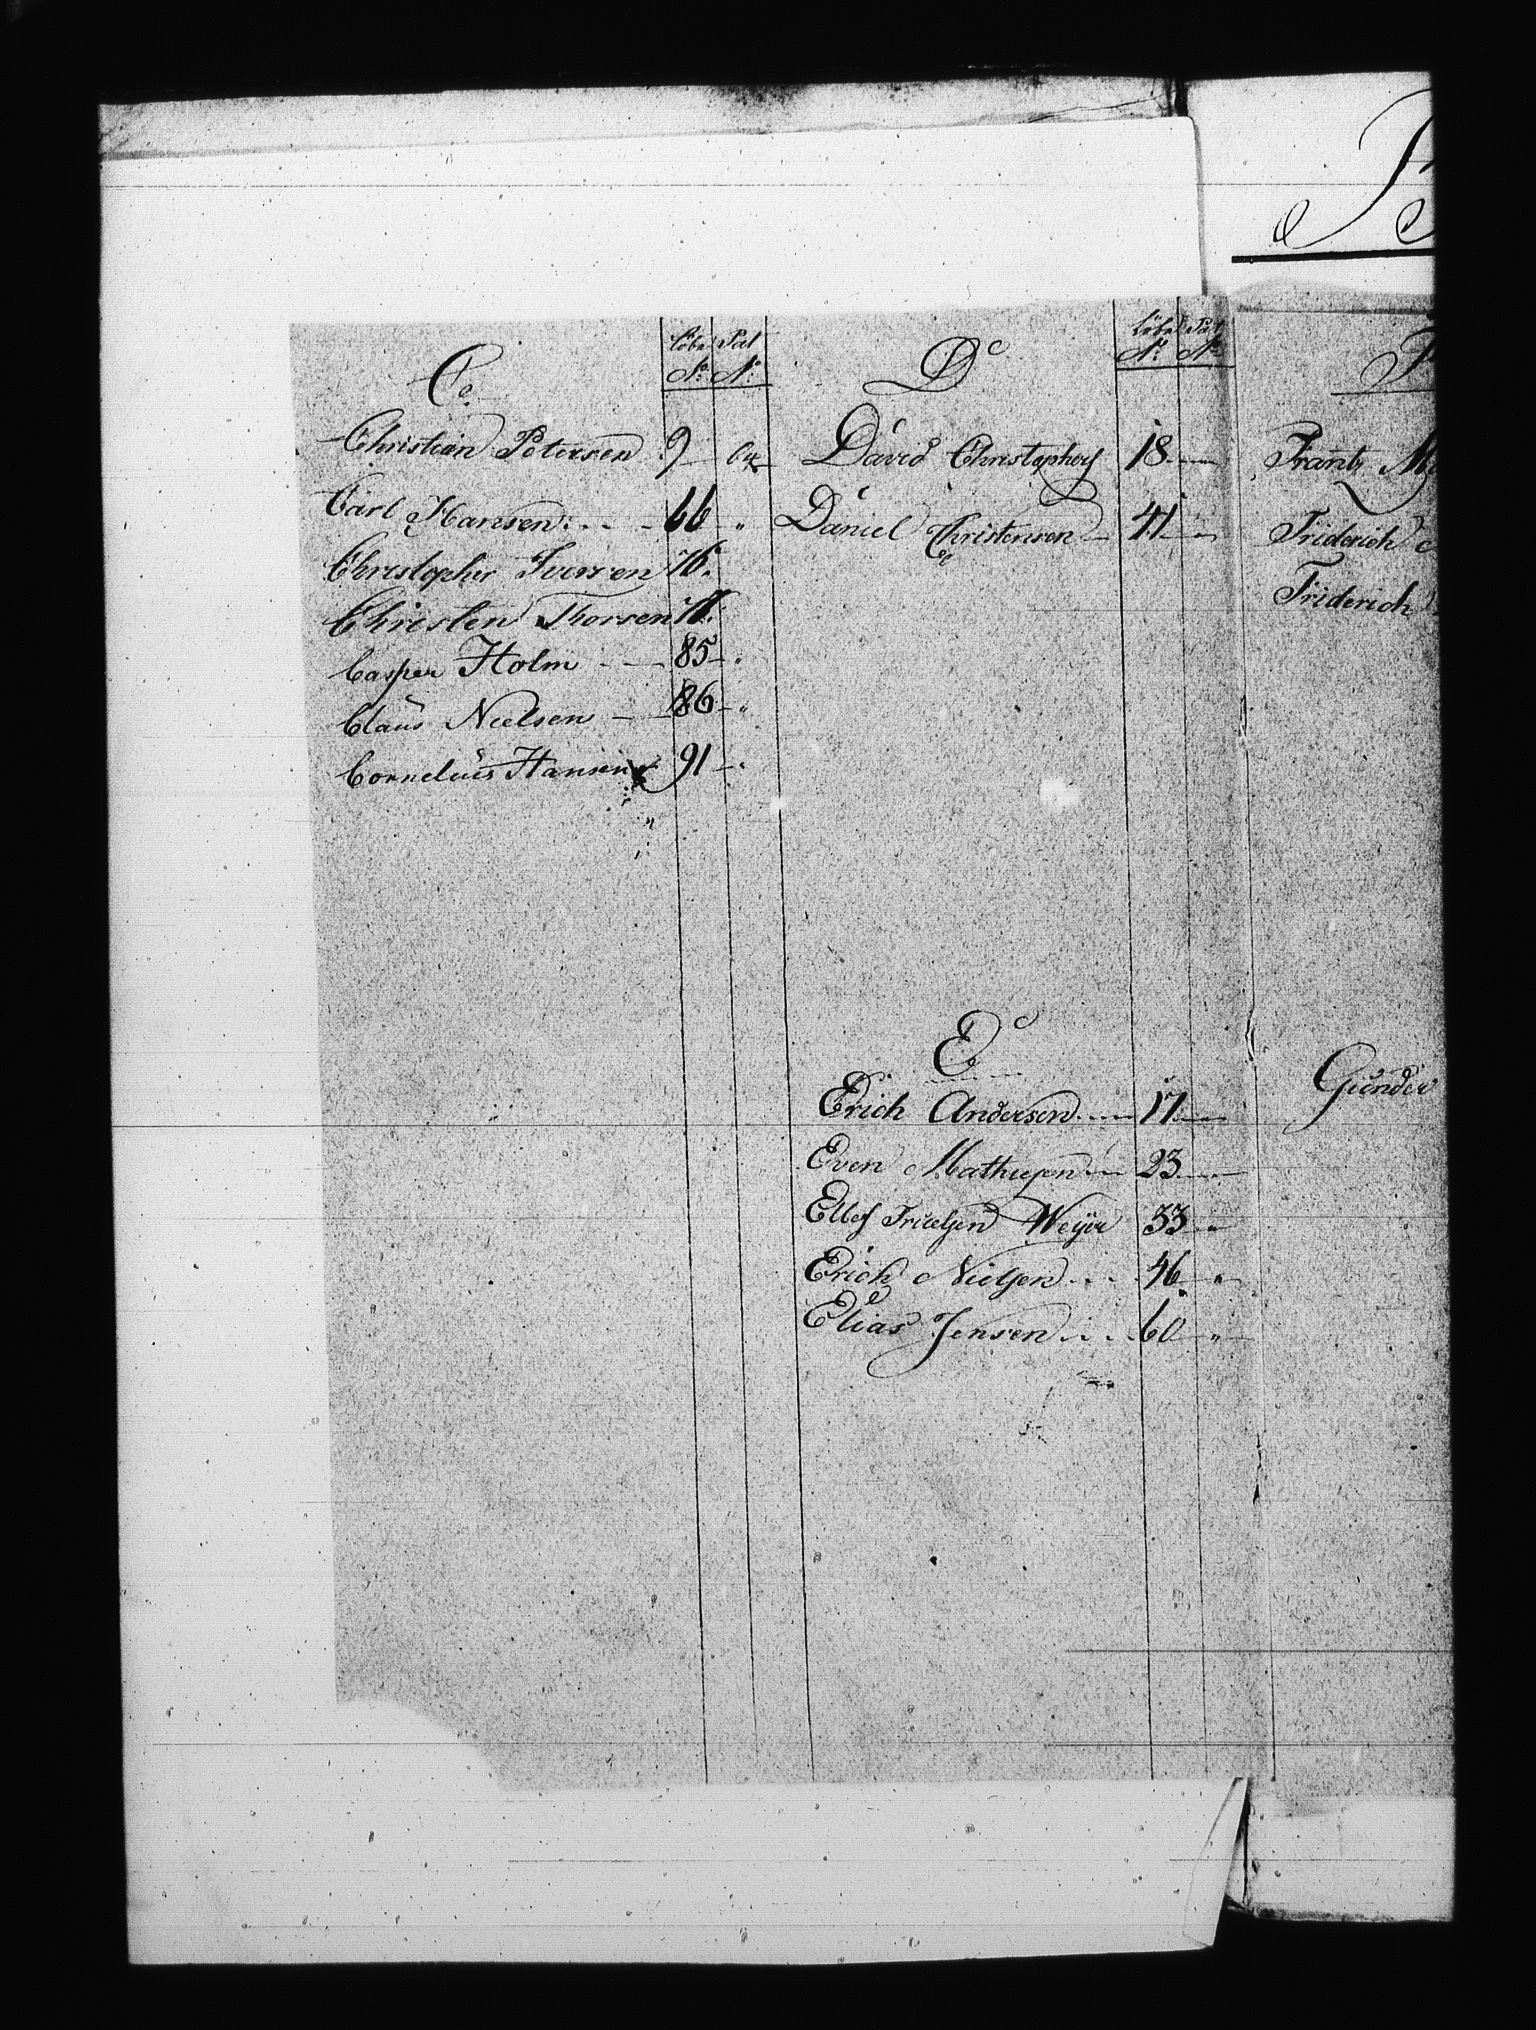 C.
Løbe No. Pat No.
Christian Petersen 9 64
Carl Hansen 66 "
Christopher Iversen 76
Christen Thorsen 78
Casper Holm 85 "
Claus Nielsen 86 "
Cornelius Hansen 91 "
D
Løbe No. Pat No.
David Christophers 18
Daniel Christensen 41 "
E
Erich Andersen 17
Even Mathiesen 23
Ellef Truelsen Weyer 33 "
Erich Nielsen 46 "
Elias Jensen 60 "
Frantz
Friderich
Friderich
Gunder